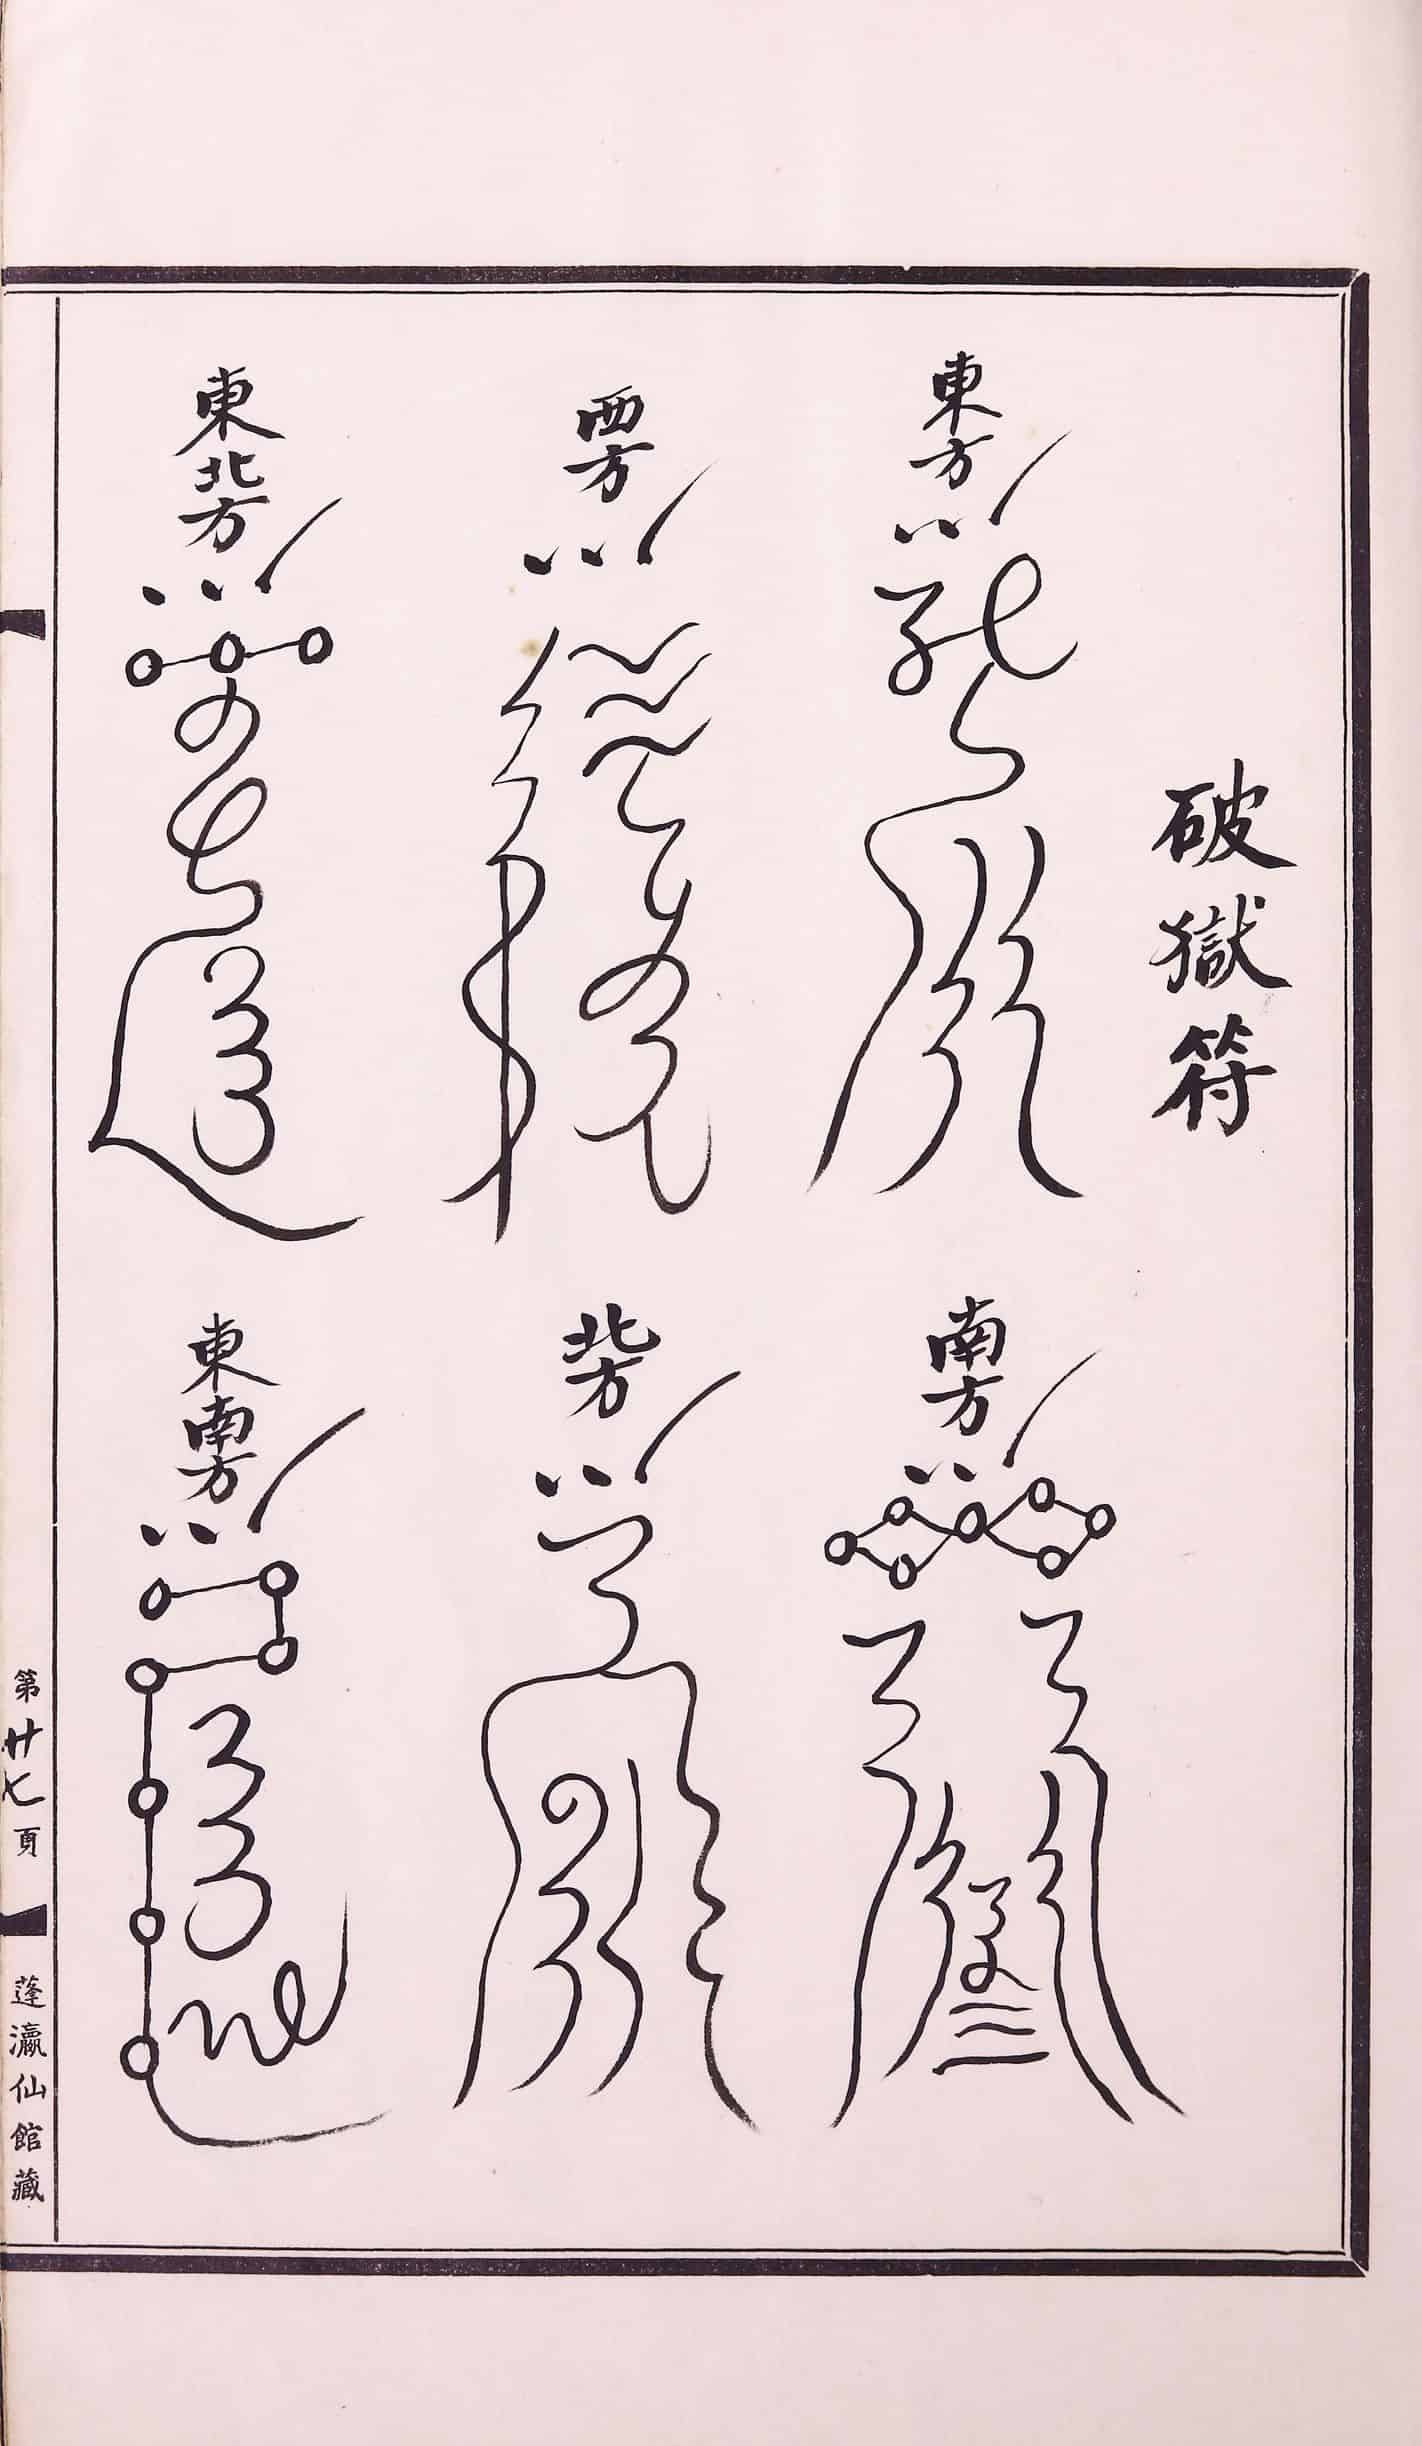 破獄符
東方
南方
西方
北方
東北方
東南方
第廿七頁
蓬瀛仙館藏